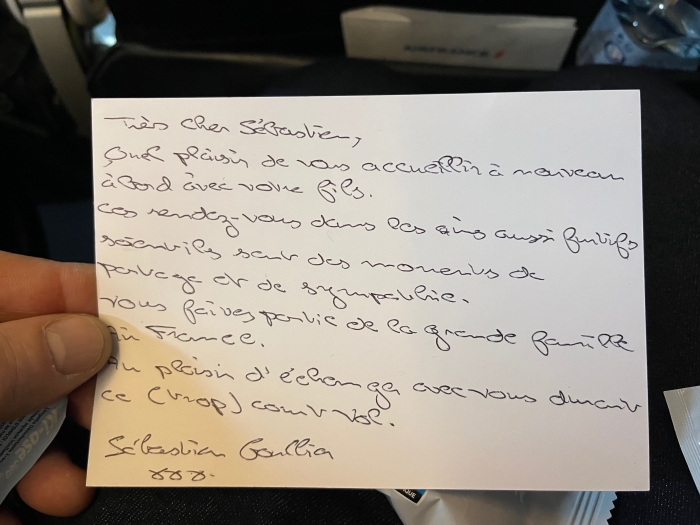 AIRFRANCE
Très Cher Sébastien,
Quel plaisir de vous accueillir à nouveau
à bord avec votre fils.
Ces rendez-vous dans les airs aussi furtifs
soient-ils sont des moments de
partage et de sympathie.
Vous faites partie de la grande famille
Air France.
Au plaisir d'échanger avec vous durant
ce (trop) court vol.
Sébastien